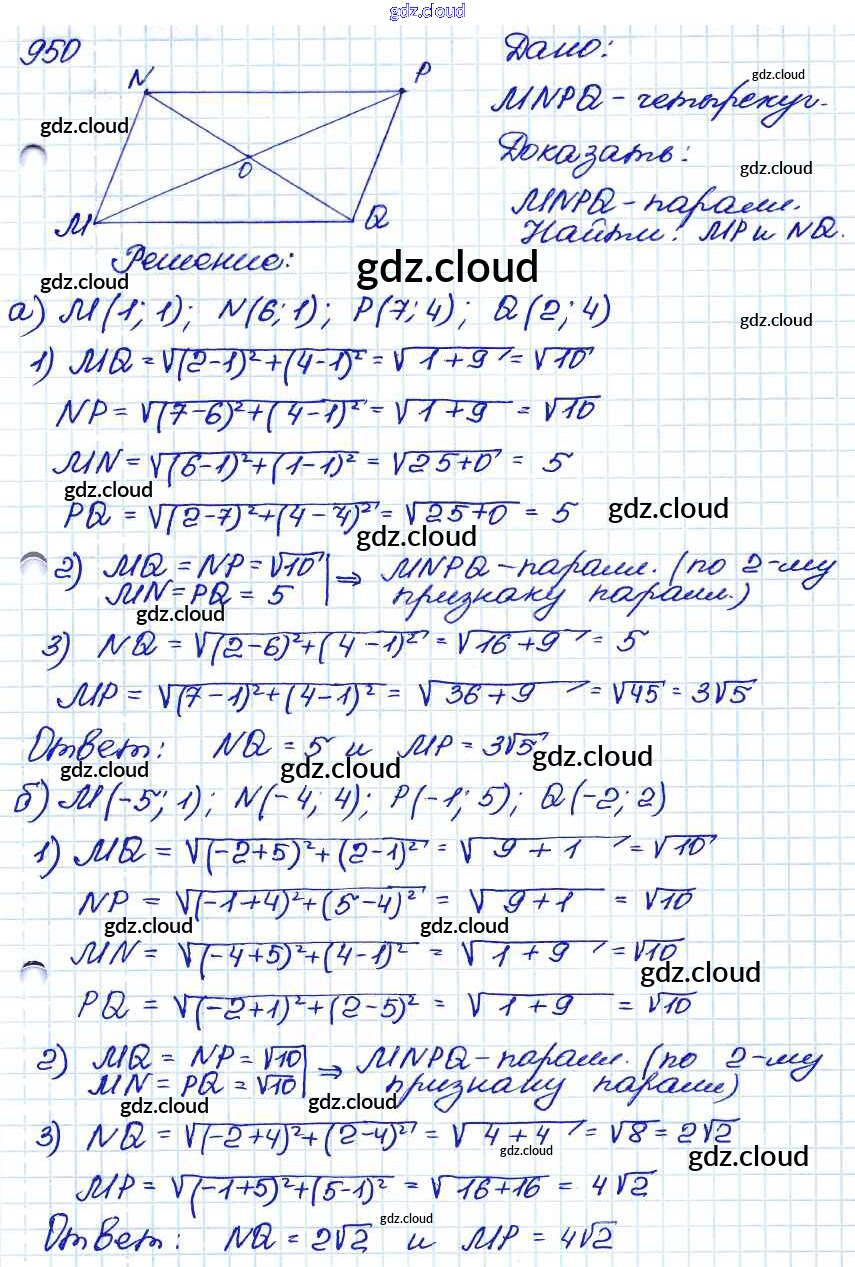 gdz.cloud
950
N P
O
M Q
gdz.cloud
Дано:
gdz.cloud
MNPQ - четырехуг.
Доказать:
gdz.cloud
MNPQ - паралл.
Найти: MP и NQ.
Решение:
gdz.cloud
gdz.cloud
а) M(1; 1); N(6; 1); P(7; 4); Q(2; 4)
gdz.cloud
1) MQ = √(2-1)²+(4-1)² = √1+9 = √10
NP = √(7-6)²+(4-1)² = √1+9 = √10
MN = √(6-1)²+(1-1)² = √25+0 = 5
gdz.cloud
PQ = √(2-7)²+(4-4)² = √25+0 = 5
gdz.cloud
gdz.cloud
2) MQ = NP = √10 | ⇒ MNPQ - паралл. (по 2-му
MN = PQ = 5 | признаку паралл.)
gdz.cloud
3) NQ = √(2-6)²+(4-1)² = √16+9 = 5
MP = √(7-1)²+(4-1)² = √36+9 = √45 = 3√5
Ответ: NQ = 5 и MP = 3√5
gdz.cloud gdz.cloud gdz.cloud
б) M(-5; 1); N(-4; 4); P(-1; 5); Q(-2; 2)
1) MQ = √(-2+5)²+(2-1)² = √9+1 = √10
NP = √(-1+4)²+(5-4)² = √9+1 = √10
gdz.cloud gdz.cloud
MN = √(-4+5)²+(4-1)² = √1+9 = √10
gdz.cloud
PQ = √(-2+1)²+(2-5)² = √1+9 = √10
2) MQ = NP = √10 | ⇒ MNPQ - паралл. (по 2-му
MN = PQ = √10 | признаку паралл)
gdz.cloud gdz.cloud
3) NQ = √(-2+4)²+(2-4)² = √4+4 = √8 = 2√2
gdz.cloud gdz.cloud
MP = √(-1+5)²+(5-1)² = √16+16 = 4√2
gdz.cloud
Ответ: NQ = 2√2 и MP = 4√2